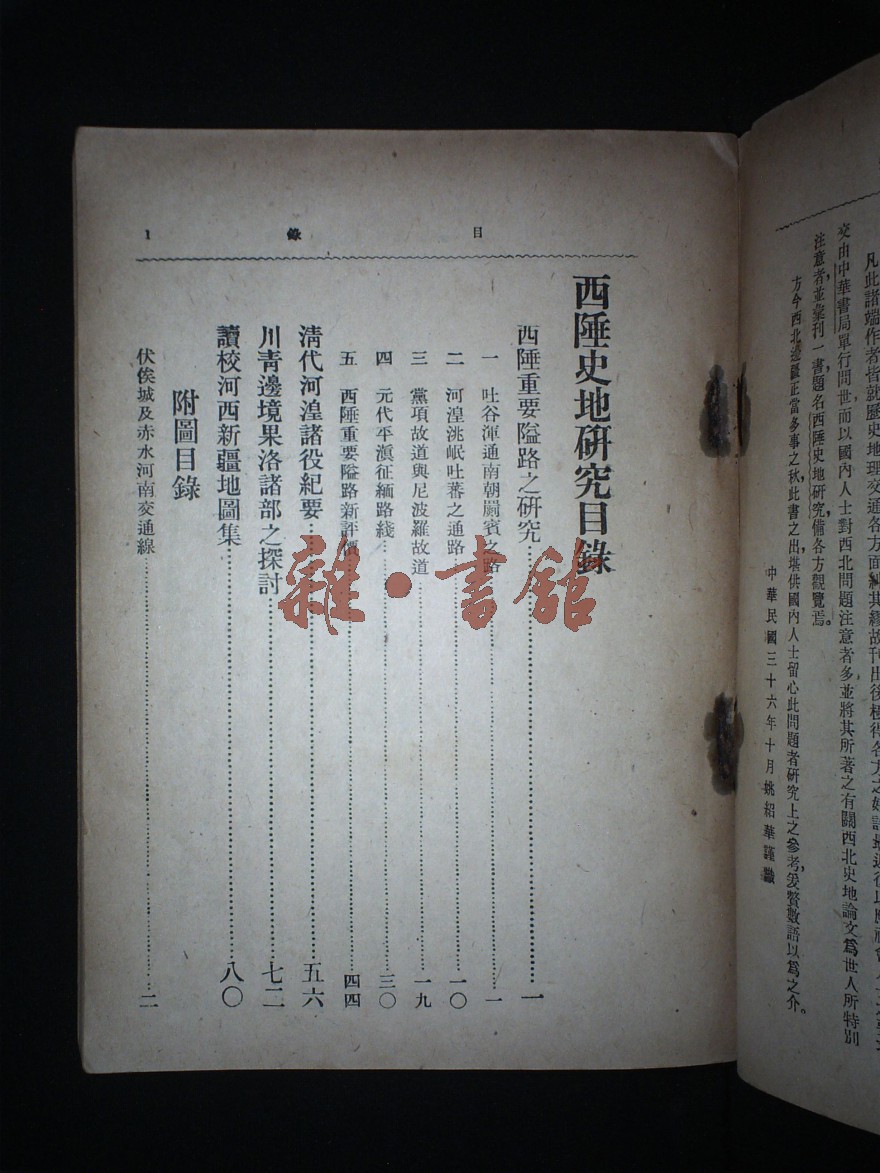 凡此諸端作者皆就歷史地理交通各方面糾其繆故刊出後極得各方之好評
交由中華書局單行問世,而以國內人士對西北問題注意者多,並將其所著之有關西北史地論文爲世人所特別
注意者,並彙刊一書,題名西陲史地研究,備各方觀覽焉。
方今西北邊疆正當多事之秋,此書之出堪供國內人士留心此問題者研究上之參考,爰贅數語以爲之介。
中華民國三十六年十月姚紹華謹識
目錄 1
西陲史地研究目錄
西陲重要隘路之研究……一
一 吐谷渾通南朝罽賓之路……一
二 河湟洮岷吐蕃之通路……一〇
三 黨項故道與尼波羅故道……一九
四 元代平滇征緬路綫……三〇
五 西陲重要隘路新評價……四四
清代河湟諸役紀要……五六
川青邊境果洛諸部之探討……七二
讀校河西新疆地圖集……八〇
附圖目錄
伏俟城及赤水河南交通線……二
雜·書館